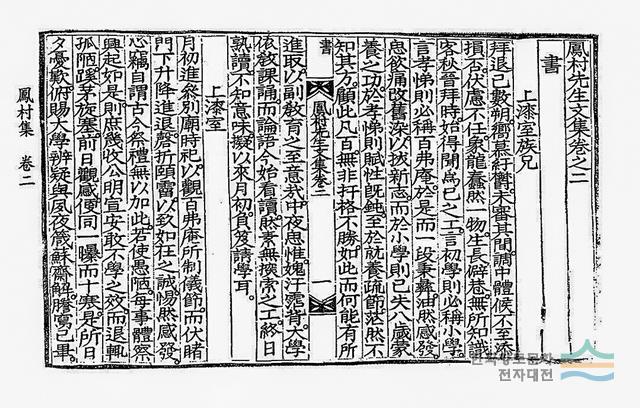 鳳村先生文集卷之二
書
上漆室族兄
拜退已數朔鄕慕紆欝未審其間調中體候不至添
損否伏慮不任象龍蠢然一物生長僻巷無所知識
客秋晉拜時始得聞爲己之工言初學則必稱小學
言孝悌則必稱百弗庵於是而一段秉彝油然感發
思欲痛改舊染以拔新志而於小學則已失八歲蒙
養之功於孝悌則賦性旣鈍至於就養疏節茫然不
知其方顧此凡百無非扞格不勝如此而何能有所
書 鳳村先生文集卷二 一
進取以副敎育之至意哉中夜思惟媿汗霑背大學
依敎課誦而論語今始看讀然素無探索之工終日
熟讀不知意味擬以來月初負笈請學耳
上漆室
月初進參別廟時祀以觀百弗庵所制儀節而伏睹
門下升降進退磬折頤霤以致如在之誠惕然感發
心竊自謂古今祭禮無以加此若使愚陋每事體察
興起如是則庶幾收公明宣安敢不學之效而退輒
孤陋蹊茅旋塞前日觀感便同一曝而十寒是所日
夕憂歎俯賜大學辨疑與夙夜箴蘇齋解謄寫已畢
鳳村集 卷二
한국향토문화
전자대전